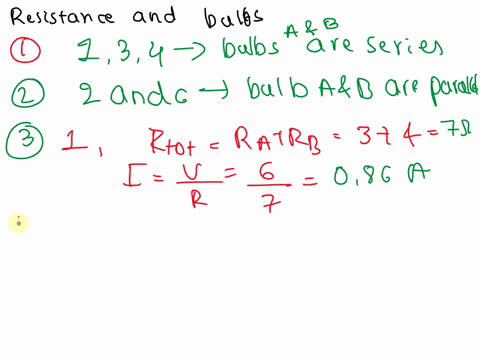 Resistance and bulbs
① 1, 3, 4 → bulbs A & B are series
② 2 and 6 → bulb A&B are parallel
③ 1, Rtot = RA + RB = 3 + 4 = 7Ω
I = V/R = 6/7 = 0.86 A